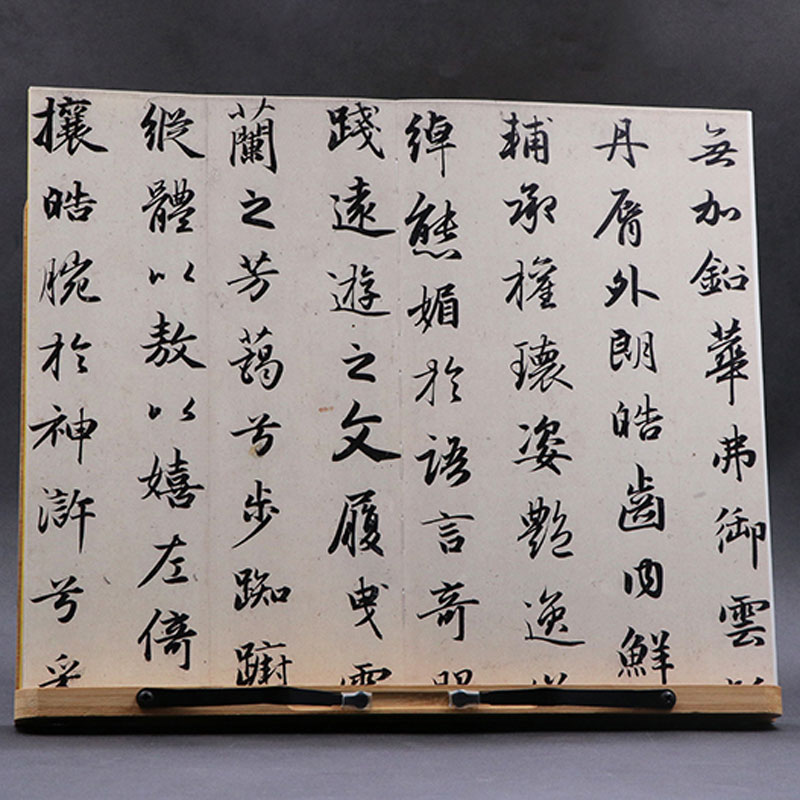 無加鉛華弗御雲
丹脣外朗皓齒内鮮
輔承權瓌姿艷逸
綽態媚於語言奇
踐遠遊之文履曳
蘭之芳藹兮步踟躕
縱體以敖以嬉左倚
攘皓腕於神滸兮采